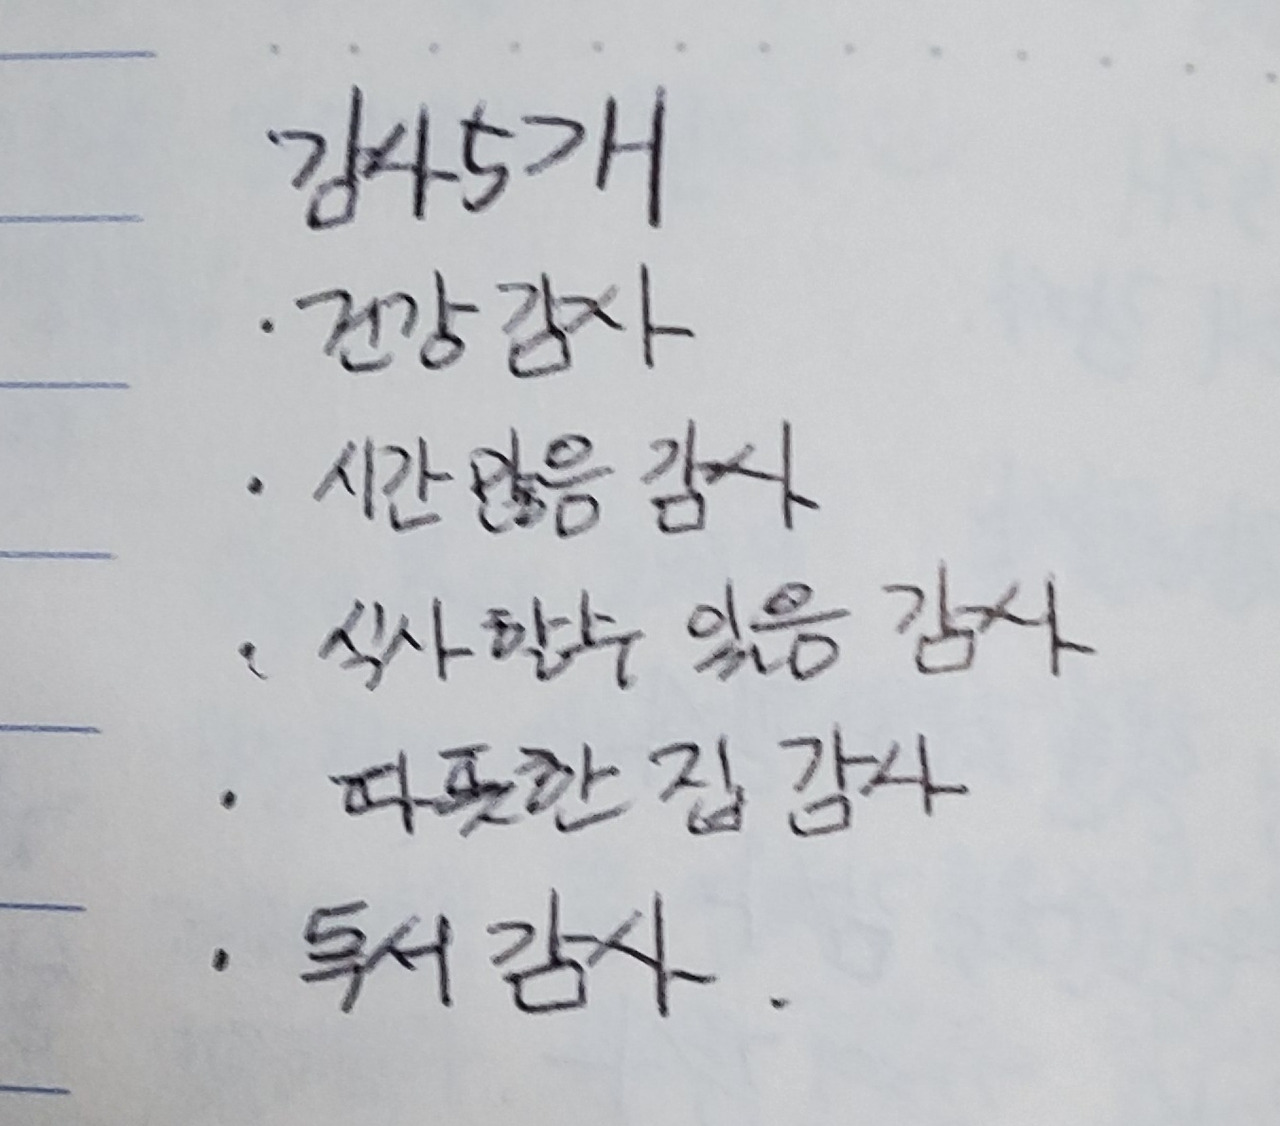 감사5개
· 건강 감사
· 시간 많음 감사
· 식사 할 수 있음 감사
· 따뜻한 집 감사
· 독서 감사.